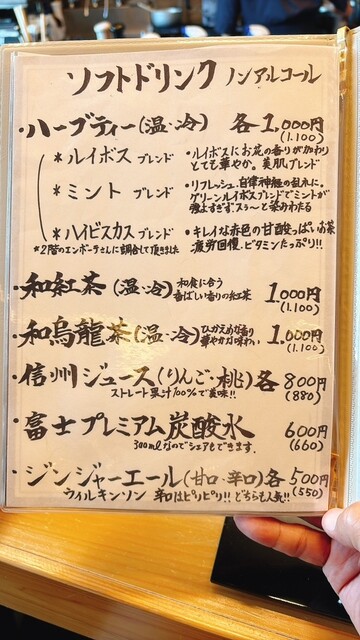 ソフトドリンク ノンアルコール
・ハーブティー(温・冷) 各1,000円
(1.100)
*ルイボス ブレンド ・ルイボスにお花の香りが加わり
とても華やか。美肌ブレンド
*ミント ブレンド ・リフレッシュ、自律神経の乱れに。
グリーンルイボスブレンドでミントが
強よすぎず、スゥ〜と染みわたる
*ハイビスカス ブレンド ・キレイな赤色の甘酸っぱいお茶
疲労回慢、ビタミンたっぷり!!
*2階のエンボーテさんに調合して頂きました
・和紅茶(温・冷) 和食に合う
香ばしい香りの和紅茶 1,000円
(1.100)
・和烏龍茶(温・冷) ひかえめな香り
華やかな味わい 1,000円
(1.100)
・信州ジュース(りんご・桃)各 800円
ストレート果汁100%で美味!! (880)
・富士プレミアム炭酸水 600円
300mlなのでシェアもできます。 (660)
・ジンジャーエール(甘口・辛口)各 500円
ウィルキンソン 辛口はピリピリ!!どちらも人気!! (550)